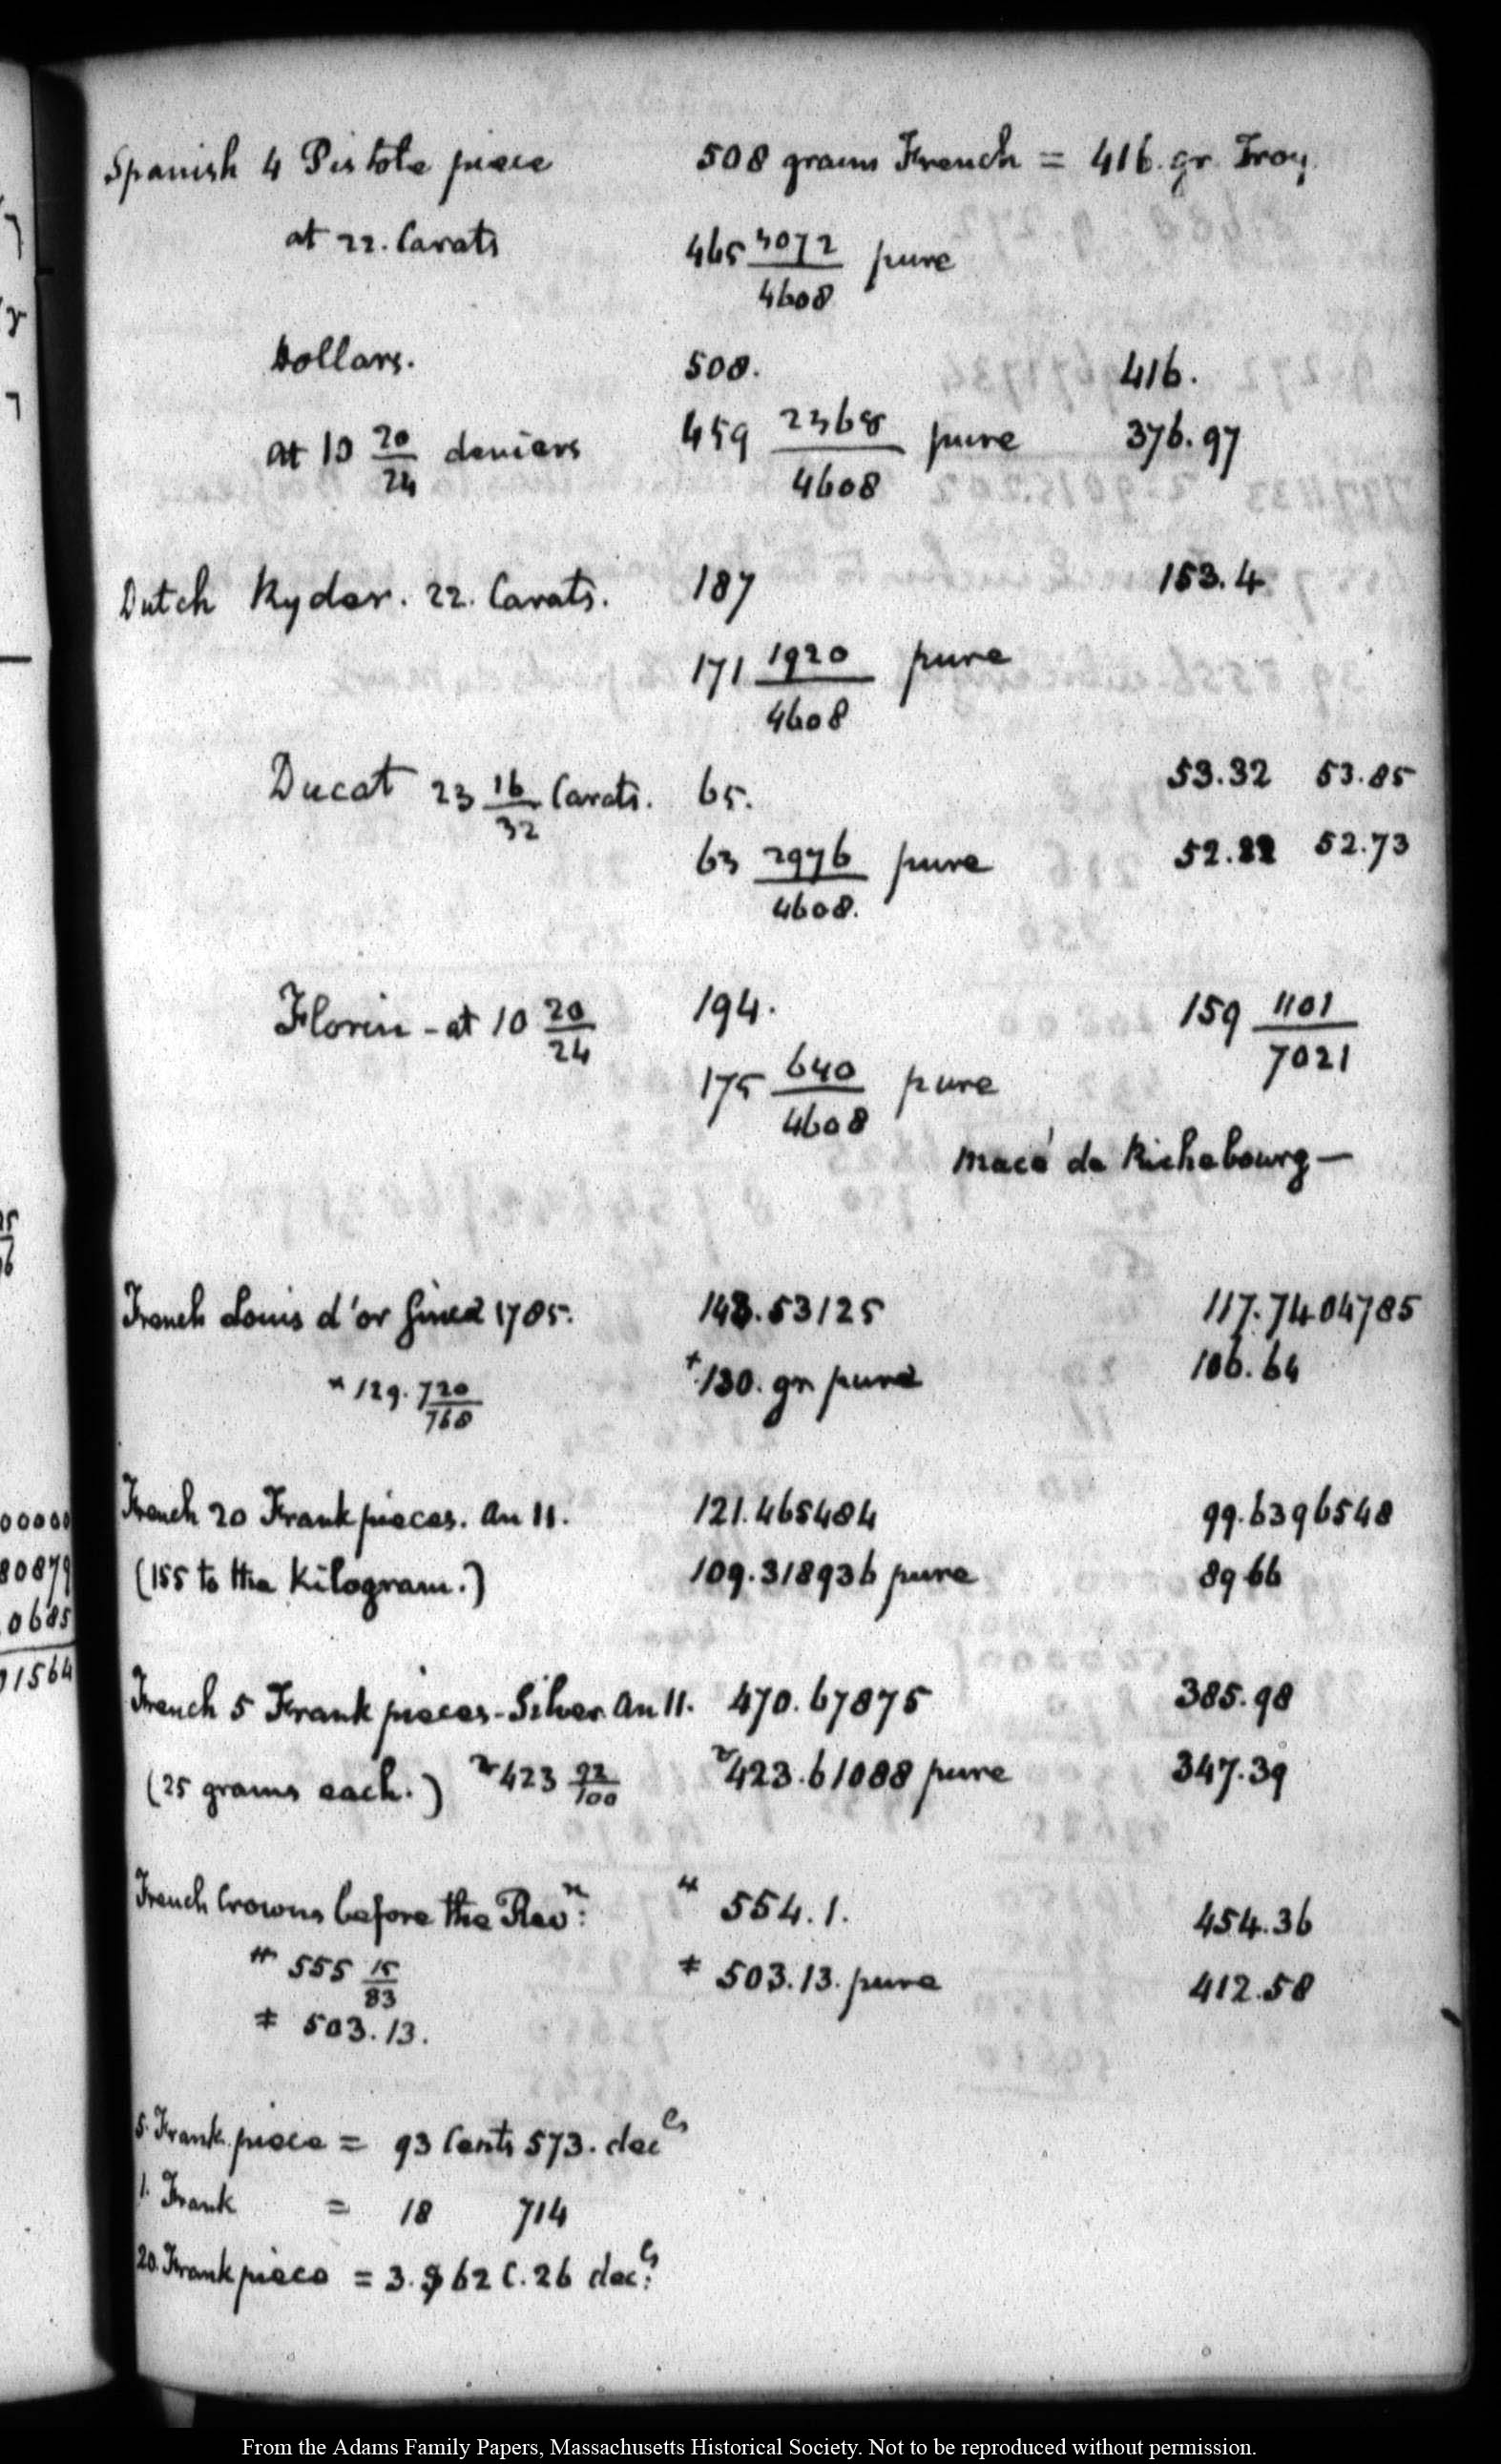 Spanish 4 Pistole piece 508 grains French = 416. gr. Troy.
at 22. Carats 465 3072/4608 pure
Dollars. 508. 416.
at 10 20/24 deniers 459 2368/4608 pure 376.97
Dutch Ryder. 22. Carats. 187 153.4
171 1920/4608 pure
Ducat 23 16/32 Carats. 65. 53.32 53.85
63 2976/4608. pure 52.22 52.73
Florin - at 10 20/24 194. 159 1101/7021
175 640/4608 pure
Macé de Richebourg —
French Louis d'or since 1785. 143.53125 117.7404785
* 129. 720/768 + 130. gr pure 106.64
French 20 Frank pieces. An 11. 121.465484 99.6396548
(155 to the Kilogram.) 109.318936 pure 89 66
French 5 Frank pieces - Silver. An 11. 470.67875 385.98
(25 grams each.) 423 92/100 423.61088 pure 347.39
French Crowns before the Revn: 554.1. 454.36
555 15/83 ‡ 503.13. pure 412.58
‡ 503.13.
5. Frank piece = 93 Cents 573. decls
1. Frank = 18 714
20. Frank piece = 3.$ 62 C. 26 decls:
00000
80879
0685
91564
From the Adams Family Papers, Massachusetts Historical Society. Not to be reproduced without permission.